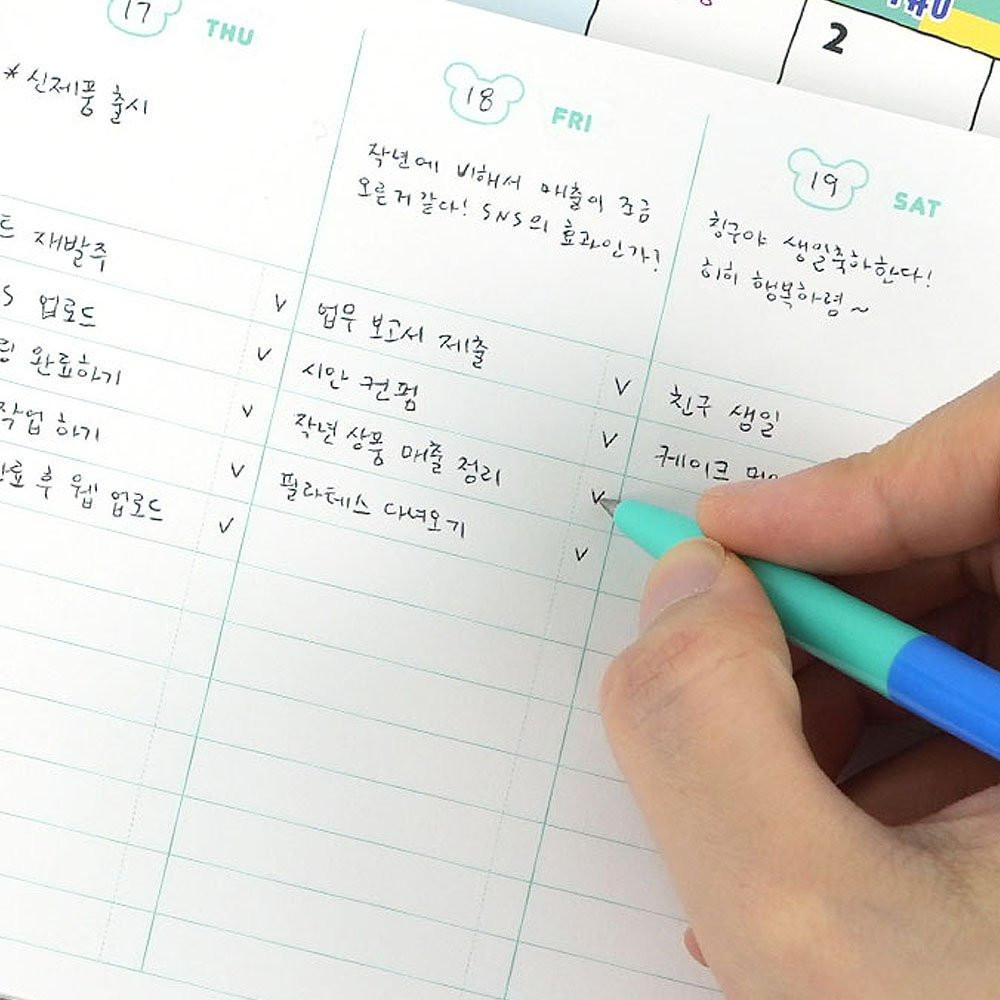 17 THU
* 신제품 출시
재발주
S 업로드
완료하기
작업 하기
후 웹 업로드
18 FRI
작년에 비해서 매출이 조금
오른거 같다! SNS의 효과인가?
업무 보고서 제출
시안 컨펌
작년 상품 매출 정리
필라테스 다녀오기
19 SAT
친구야 생일축하한다!
히히 행복하렴~
친구 생일
케이크
THU
2